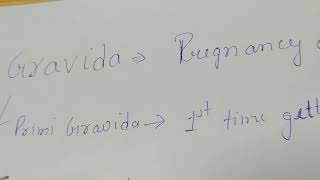 Gravida => Pregnancy
Primi Gravida → 1st time gett